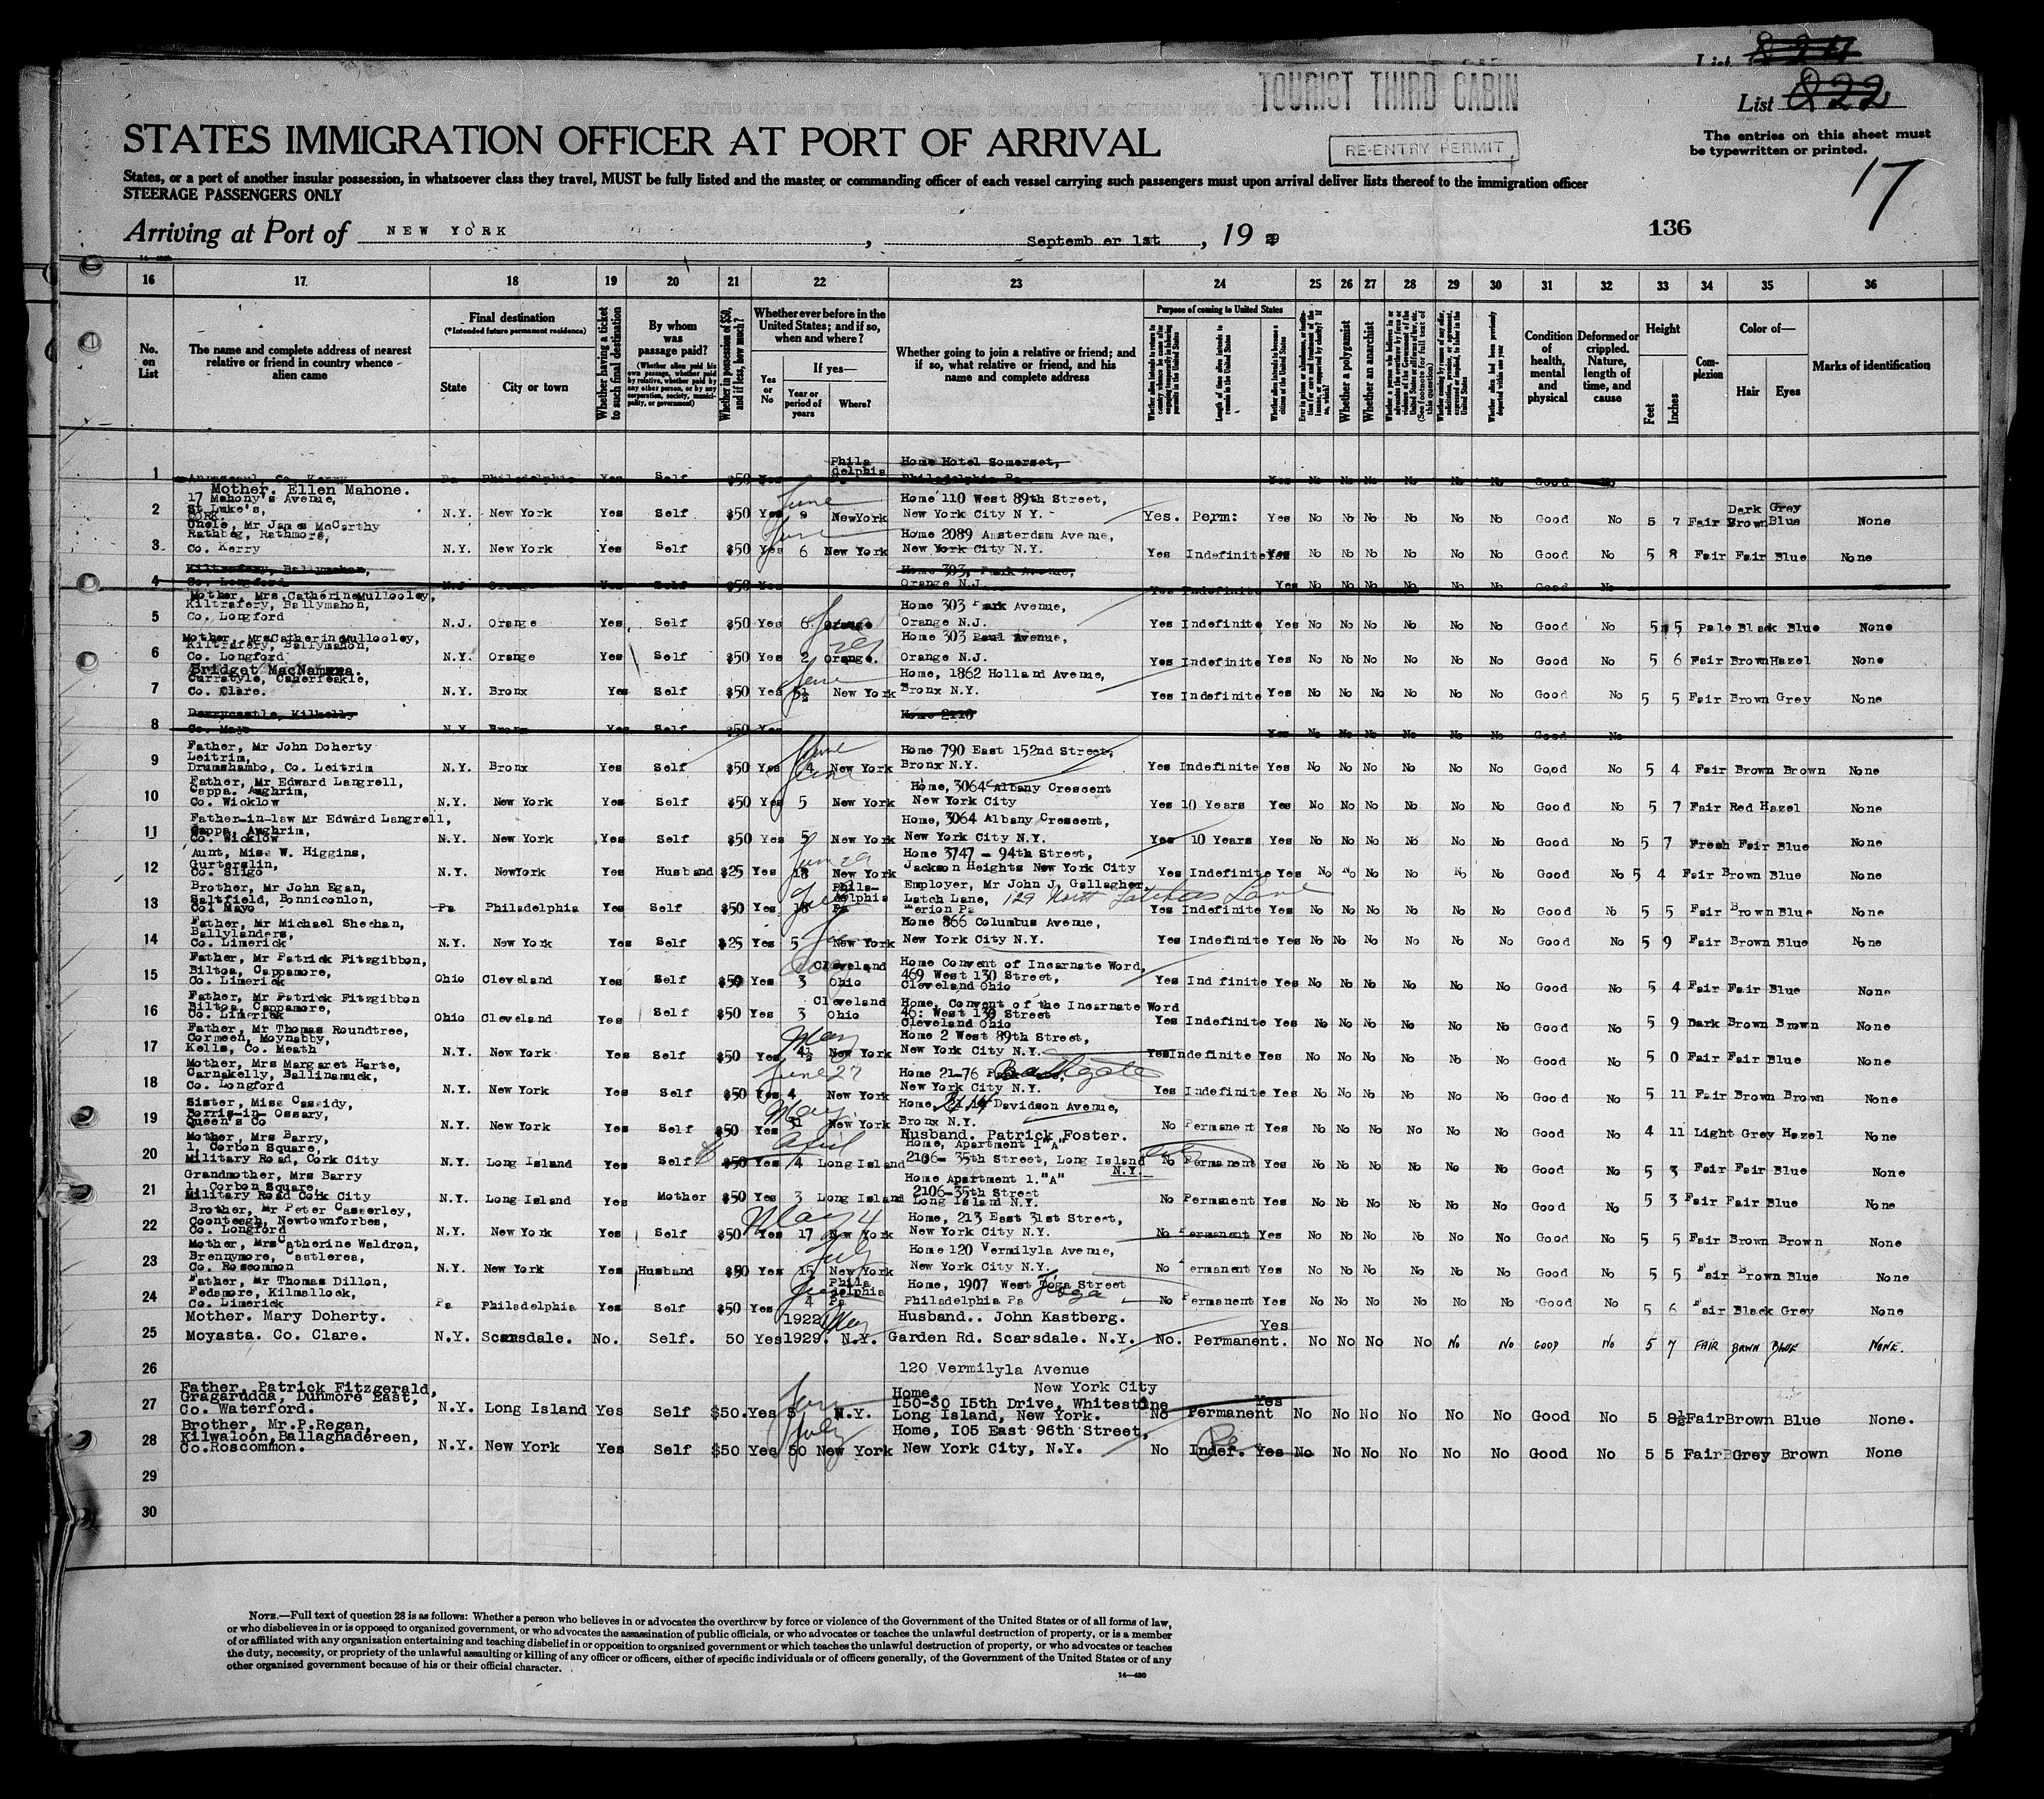 List 824
TOURIST THIRD CABIN
List 822
STATES IMMIGRATION OFFICER AT PORT OF ARRIVAL
RE-ENTRY PERMIT
The entries on this sheet must
be typewritten or printed.
17
States, or a port of another insular possession, in whatsoever class they travel, MUST be fully listed and the master or commanding officer of each vessel carrying such passengers must upon arrival deliver lists thereof to the immigration officer
STEERAGE PASSENGERS ONLY
Arriving at Port of NEW YORK, September 1st, 1929
136
16 17 18 19 20 21 22 23 24 25 26 27 28 29 30 31 32 33 34 35 36
No. on List
The name and complete address of nearest relative or friend in country whence alien came
Final destination
(*Intended future permanent residence)
State
City or town
Whether having a ticket to such final destination
By whom was passage paid?
(Whether alien paid his own passage, whether paid by relative, whether paid by any other person, or by any corporation, society, municipality, or government)
Whether in possession of $50, and if less, how much?
Whether ever before in the United States; and if so, when and where?
Yes or No
If yes—
Year or period of years
Where?
Whether going to join a relative or friend; and if so, what relative or friend, and his name and complete address
Purpose of coming to United States
Length of time alien intends to remain in the United States
Whether alien intends to become a citizen of the United States
Whether a polygamist
Whether an anarchist
Whether alien had been previously deported within one year
Condition of health, mental and physical
Deformed or crippled. Nature, length of time, and cause
Height
Feet
Inches
Complexion
Color of—
Hair
Eyes
Marks of identification
1 Annascaul, Co. Kerry Pa Philadelphia Yes Self $50 Yes Philadelphia Pa Home Hotel Somerset, Philadelphia Pa Yes No No No No No No Good No
2 Mother. Ellen Mahone. 17 Mahony's Avenue, St Luke's, CORK N.Y. New York Yes Self $50 Yes June NewYork Home 110 West 89th Street, New York City N Y. Yes. Perm: Yes No No No No No No Good No 5 7 Fair Dark Brown Grey Blue None
3 Uncle, Mr James McCarthy Rathbeg, Rathmore, Co. Kerry N.Y. New York Yes Self $50 Yes June 6 New York Home 2089 Amsterdam Avenue, New York City N.Y. Yes Indefinite Yes No No No No No No Good No 5 8 Fair Fair Blue None
4 Kiltrafery, Ballymahon, Co. Longford N.J Orange Yes Self $50 Yes Home 303, Park Avenue, Orange N.J. Yes Indefinite Yes No No No No No No Good No
5 Mother, Mrs.Catherine Mullooley, Kiltrafery, Ballymahon, Co. Longford N.J. Orange Yes Self $50 Yes 6 Orange Home 303 Park Avenue, Orange N.J. Yes Indefinite Yes No No No No No No Good No 5 5 Pale Black Blue None
6 Mother, MrsCatherineMullooley, Kiltrafery, Ballymahon, Co. Longford N.Y. Orange Yes Self $50 Yes 2 Orange. Home 303 Paul Avenue, Orange N.J. Yes Indefinite Yes No No No No No No Good No 5 6 Fair Brown Hazel None
7 Bridget MacNamara. Currstyle, Caherfeakle, Co. Clare. N.Y. Bronx Yes Self $50 Yes June 5½ New York Home, 1862 Holland Avenue, Bronx N.Y. Yes Indefinite Yes No No No No No No Good No 5 5 Fair Brown Grey None
8 Derrycastle, Kilkelly Co. Mayo N.Y. Bronx Yes Self $50 Yes Home 2116 Yes No No No No No No Good No
9 Father, Mr John Doherty Leitrim, Drumshambo, Co. Leitrim N.Y. Bronx Yes Self $50 Yes June 4 New York Home 790 East 152nd Street, Bronx N.Y. Yes Indefinite Yes No No No No No No Good No 5 4 Fair Brown Brown None
10 Father, Mr Edward Langrell, Cappa. Aughrim, Co. Wicklow N.Y. New York Yes Self $50 Yes June 5 New York Home, 3064 Albany Crescent New York City Yes 10 Years Yes No No No No No No Good No 5 7 Fair Red Hazel None
11 Father-in-law Mr Edward Langrell, Cappa, Aughrim, Co. Wicklow N.Y. New York Yes Self $50 Yes 5 New York Home, 3064 Albany Crescent, New York City N.Y. Yes 10 Years Yes No No No No No No Good No 5 7 Fresh Fair Blue None
12 Aunt, Miss W. Higgins, Gurterslin, Co. Sligo N.Y. NewYork Yes Husband $25 Yes Jun 29 18 New York Home 3747 - 94th Street, Jackson Heights New York City Yes Indefinite Yes No No No No No No Good No 5 4 Fair Brown Blue None
13 Brother, Mr John Egan, Saltfield, Bonniconlon, Co. Mayo Pa Philadelphia Yes Self $50 Yes 18 Phila-delphia Pa Employer, Mr John J. Gallagher, Latch Lane, Merion Pa 129 North Latches Lane Yes Indefinite Yes No No No No No No Good No 5 5 Fair Brown Blue None
14 Father, Mr Michael Sheehan, Ballylanders, Co. Limerick N.Y. New York Yes Self $25 Yes 5 New York Home 866 Columbus Avenue, New York City N.Y. Yes Indefinite Yes No No No No No No Good No 5 9 Fair Brown Blue None
15 Father, Mr Patrick Fitzgibbon, Biltoa, Cappamore, Co. Limerick Ohio Cleveland Yes Self $50 Yes 3 Cleveland Ohio Home Convent of Incarnate Word, 469 West 130 Street, Cleveland Ohio Yes Ind finite Yes No No No No No No Good No 5 4 Fair Fair Blue None
16 Father, Mr Patrick Fitzgibbon Biltoa, Cappamore, Co. Limerick Ohio Cleveland Yes Self $50 Yes 3 Cleveland Ohio Home, Convent of the Incarnate Word 46: West 130 Street Cleveland Ohio Yes Indefinite Yes No No No No No No Good No 5 9 Dark Brown Brown None
17 Father, Mr Thomas Roundtree, Cormeen, Moynabby, Kells, Co. Meath N.Y. New York Yes Self $50 Yes May 4½ New York Home 2 West 89th Street, New York City N.Y. Yes Indefinite Yes No No No No No No Good No 5 0 Fair Fair Blue None
18 Mother, Mrs Margaret Harte, Carnakelly, Ballinamuck, Co. Longford N.Y. New York Yes Self $50 Yes June 27 4 New York Home 21-76 Bathgate New York City N.Y. Yes Indefinite Yes No No No No No No Good No 5 11 Fair Brown Brown None
19 Sister, Miss Cassidy, Borris-in- Ossary, Queen's Co N.Y. New York Yes Self $50 Yes May 31 New York Home, 2114 Davidson Avenue, Bronx N.Y. No Permanent Yes No No No No No No Good No 4 11 Light Grey Hazel None
20 Mother, Mrs Barry, 1, Corbon Square, Military Road, Cork City N.Y. Long Island Yes Self $50 Yes April 4 Long Island Husband. Patrick Foster. Home, Apartment 1"A" 2106- 35th Street, Long Island N.Y. No Permanent Yes No No No No No No Good No 5 3 Fair Fair Blue None
21 Grandmother, Mrs Barry 1, Corbon Square, Military Road Cork City N.Y. Long Island Yes Mother $50 Yes 3 Long Island Home Apartment 1."A" 2106-35th Street Long Island N.Y. No Permanent Yes No No No No No No Good No 5 3 Fair Fair Blue None
22 Brother, Mr Peter Casserley, Coonteagh, Newtownforbes, Co. Longford N.Y. New York Yes Self $50 Yes May 4 17 New York Home, 213 East 31st Street, New York City N.Y. No Permanent Yes No No No No No No Good No 5 5 Fair Brown Brown None
23 Mother, MrsCatherine Waldron, Brennymore, Castlerea, Co. Roscommon N.Y. New York Yes Husband $50 Yes July 15 New York Home 120 Vermilyla Avenue, New York City N.Y. No Permanent Yes No No No No No No Good No 5 5 Fair Brown Blue None
24 Father, Mr Thomas Dillon, Fedamore, Kilmallock, Co. Limerick Pa Philadelphia Yes Self $50 Yes 4 Phila delphia Pa Home, 1907 West Tioga Street Philadelphia Pa No Permanent Yes No No No No No No Good No 5 6 Fair Black Grey None
25 Mother. Mary Doherty. Moyasta. Co. Clare. N.Y. Scarsdale. No. Self. 50 Yes 1922 1929. May N.Y. Husband.. John Kastberg. Garden Rd. Scarsdale. N.Y. No. Permanent. Yes No No No No No No GOOD No 5 7 FAIR BRWN BLUE NONE.
26 120 Vermilyla Avenue New York City
27 Father, Patrick Fitzgerald, Gragarudda, Dunmore East, Co. Waterford. N.Y. Long Island Yes Self $50. Yes 5 N.Y. Home, 150-30 15th Drive, Whitestone Long Island, New York. No Permanent Yes No No No No No No Good No 5 8½ Fair Brown Blue None.
28 Brother, Mr.P.Regan, Kilwaloon, Ballaghadereen, Co.Roscommon. N.Y. New York Yes Self $50 Yes July 50 New York Home, 105 East 96th Street, New York City, N.Y. No Indef. Yes No No No No No No Good No 5 5 Fair Grey Brown None
29
30
NOTE.—Full text of question 28 is as follows: Whether a person who believes in or advocates the overthrow by force or violence of the Government of the United States or of all forms of law,
or who disbelieves in or is opposed to organized government, or who advocates the assassination of public officials, or who advocates or teaches the unlawful destruction of property, or is a member
of or affiliated with any organization entertaining and teaching disbelief in or opposition to organized government or which teaches the unlawful destruction of property, or who advocates or teaches
the duty, necessity, or propriety of the unlawful assaulting or killing of any officer or officers, either of specific individuals or of officers generally, of the Government of the United States or of any
other organized government because of his or their official character.
14—430